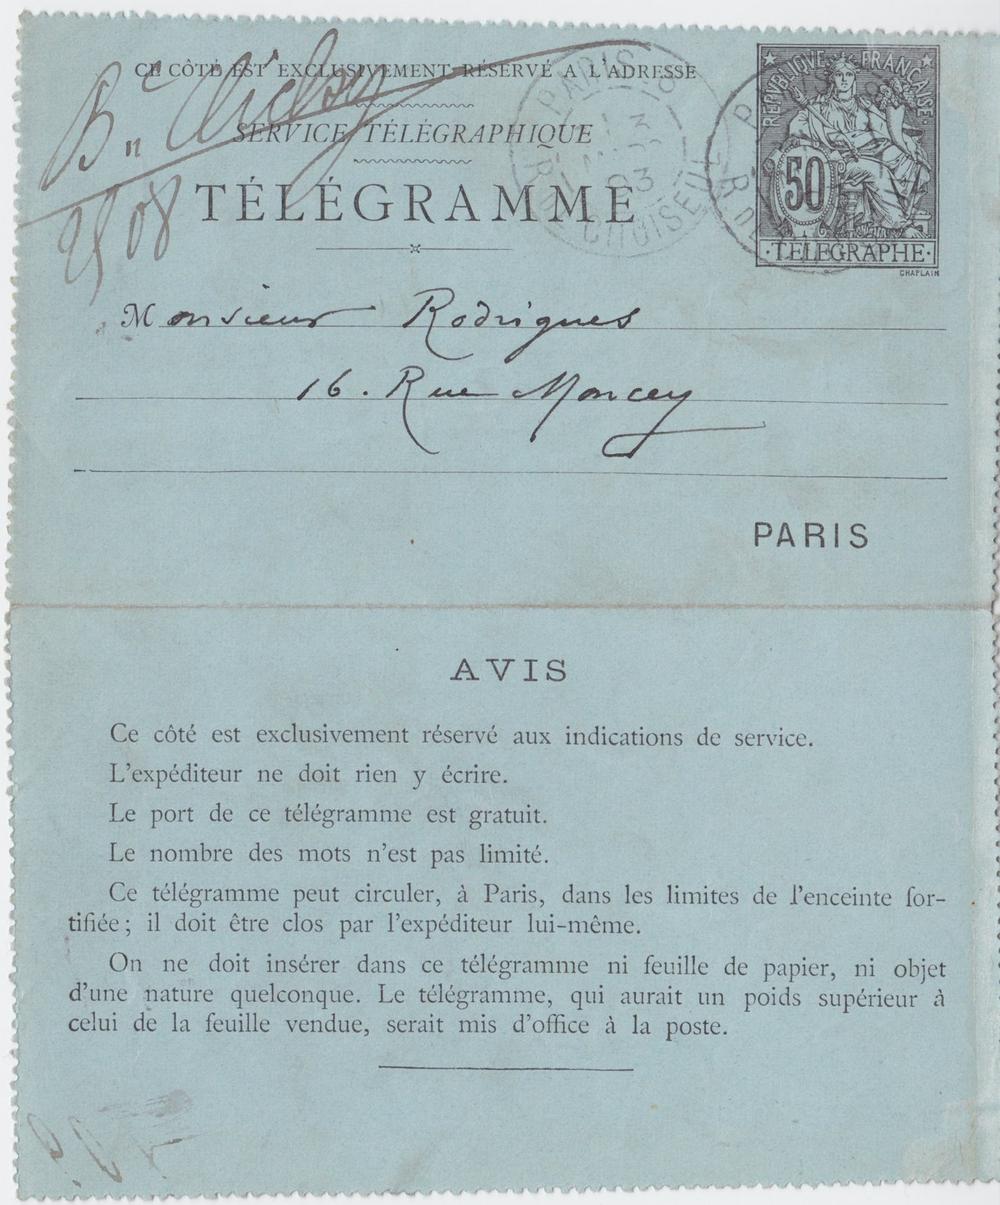 CE CÔTÉ EST EXCLUSIVEMENT RÉSERVÉ A L'ADRESSE
SERVICE TÉLÉGRAPHIQUE
TÉLÉGRAMME
PARIS
R CHOISEUL
RÉPUBLIQUE FRANÇAISE
50
TÉLÉGRAPHE
CHAPLAIN
Bd Clichy
2508
Monsieur Rodrigues
16. Rue Moncey
PARIS
AVIS
Ce côté est exclusivement réservé aux indications de service.
L'expéditeur ne doit rien y écrire.
Le port de ce télégramme est gratuit.
Le nombre des mots n'est pas limité.
Ce télégramme peut circuler, à Paris, dans les limites de l'enceinte for-
tifiée; il doit être clos par l'expéditeur lui-même.
On ne doit insérer dans ce télégramme ni feuille de papier, ni objet
d'une nature quelconque. Le télégramme, qui aurait un poids supérieur à
celui de la feuille vendue, serait mis d'office à la poste.